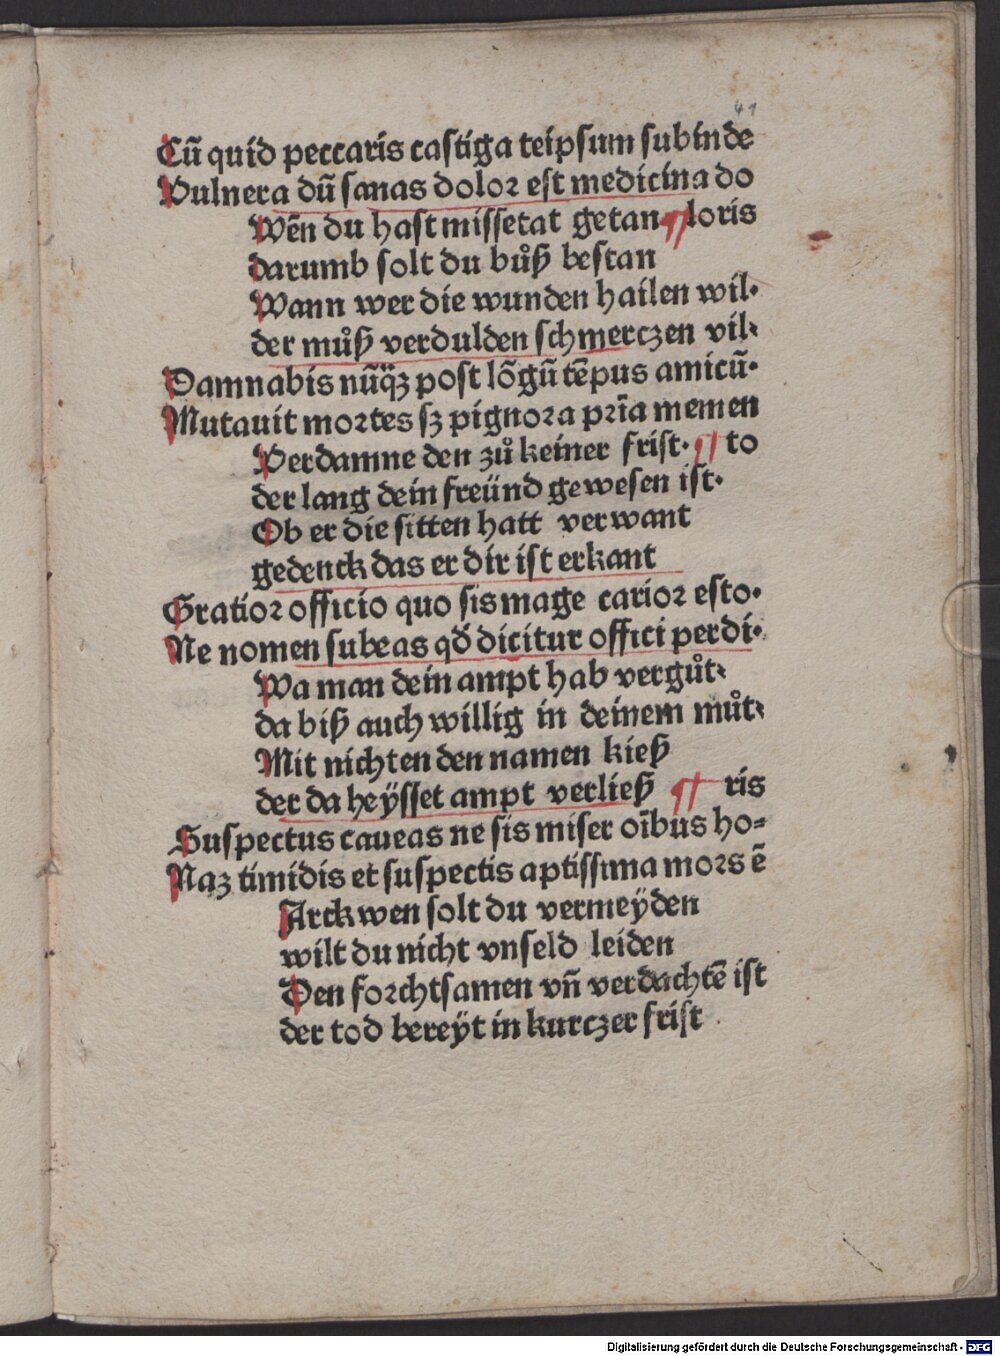 41
Cū quid peccaris castiga teipsum subinde
Vulnera dū sanas dolor est medicina do
Wēn du hast missetat getan ¶ loris
darumb solt du bůß bestan
Wann wer die wunden hailen wil·
der můß verdulden schmerczen vil·
Damnabis nūq̄ꝫ post lōgū tēpus amicū·
Mutauit mortes sꝫ pignora prīa memen
Verdamne den zů keiner frist· ¶ to
der lang dein freünd gewesen ist·
Ob er die sitten hatt verwant
gedenck das er dir ist erkant
Gratior officio quo sis mage carior esto·
Ne nomen subeas qđ dicitur offici perdi·
Wa man dein ampt hab vergůt·
da biß auch willig in deinem můt·
Mit nichten den namen kieß
der da heÿsset ampt verließ ¶ ris
Suspectus caueas ne sis miser oībus ho-
Naꝫ timidis et suspectis aptissima mors ē
Arckwen solt du vermeÿden
wilt du nicht vnseld leiden
Den forchtsamen vn̄ verdachtē ist
der tod bereÿt in kurczer frist
Digitalisierung gefördert durch die Deutsche Forschungsgemeinschaft - DFG